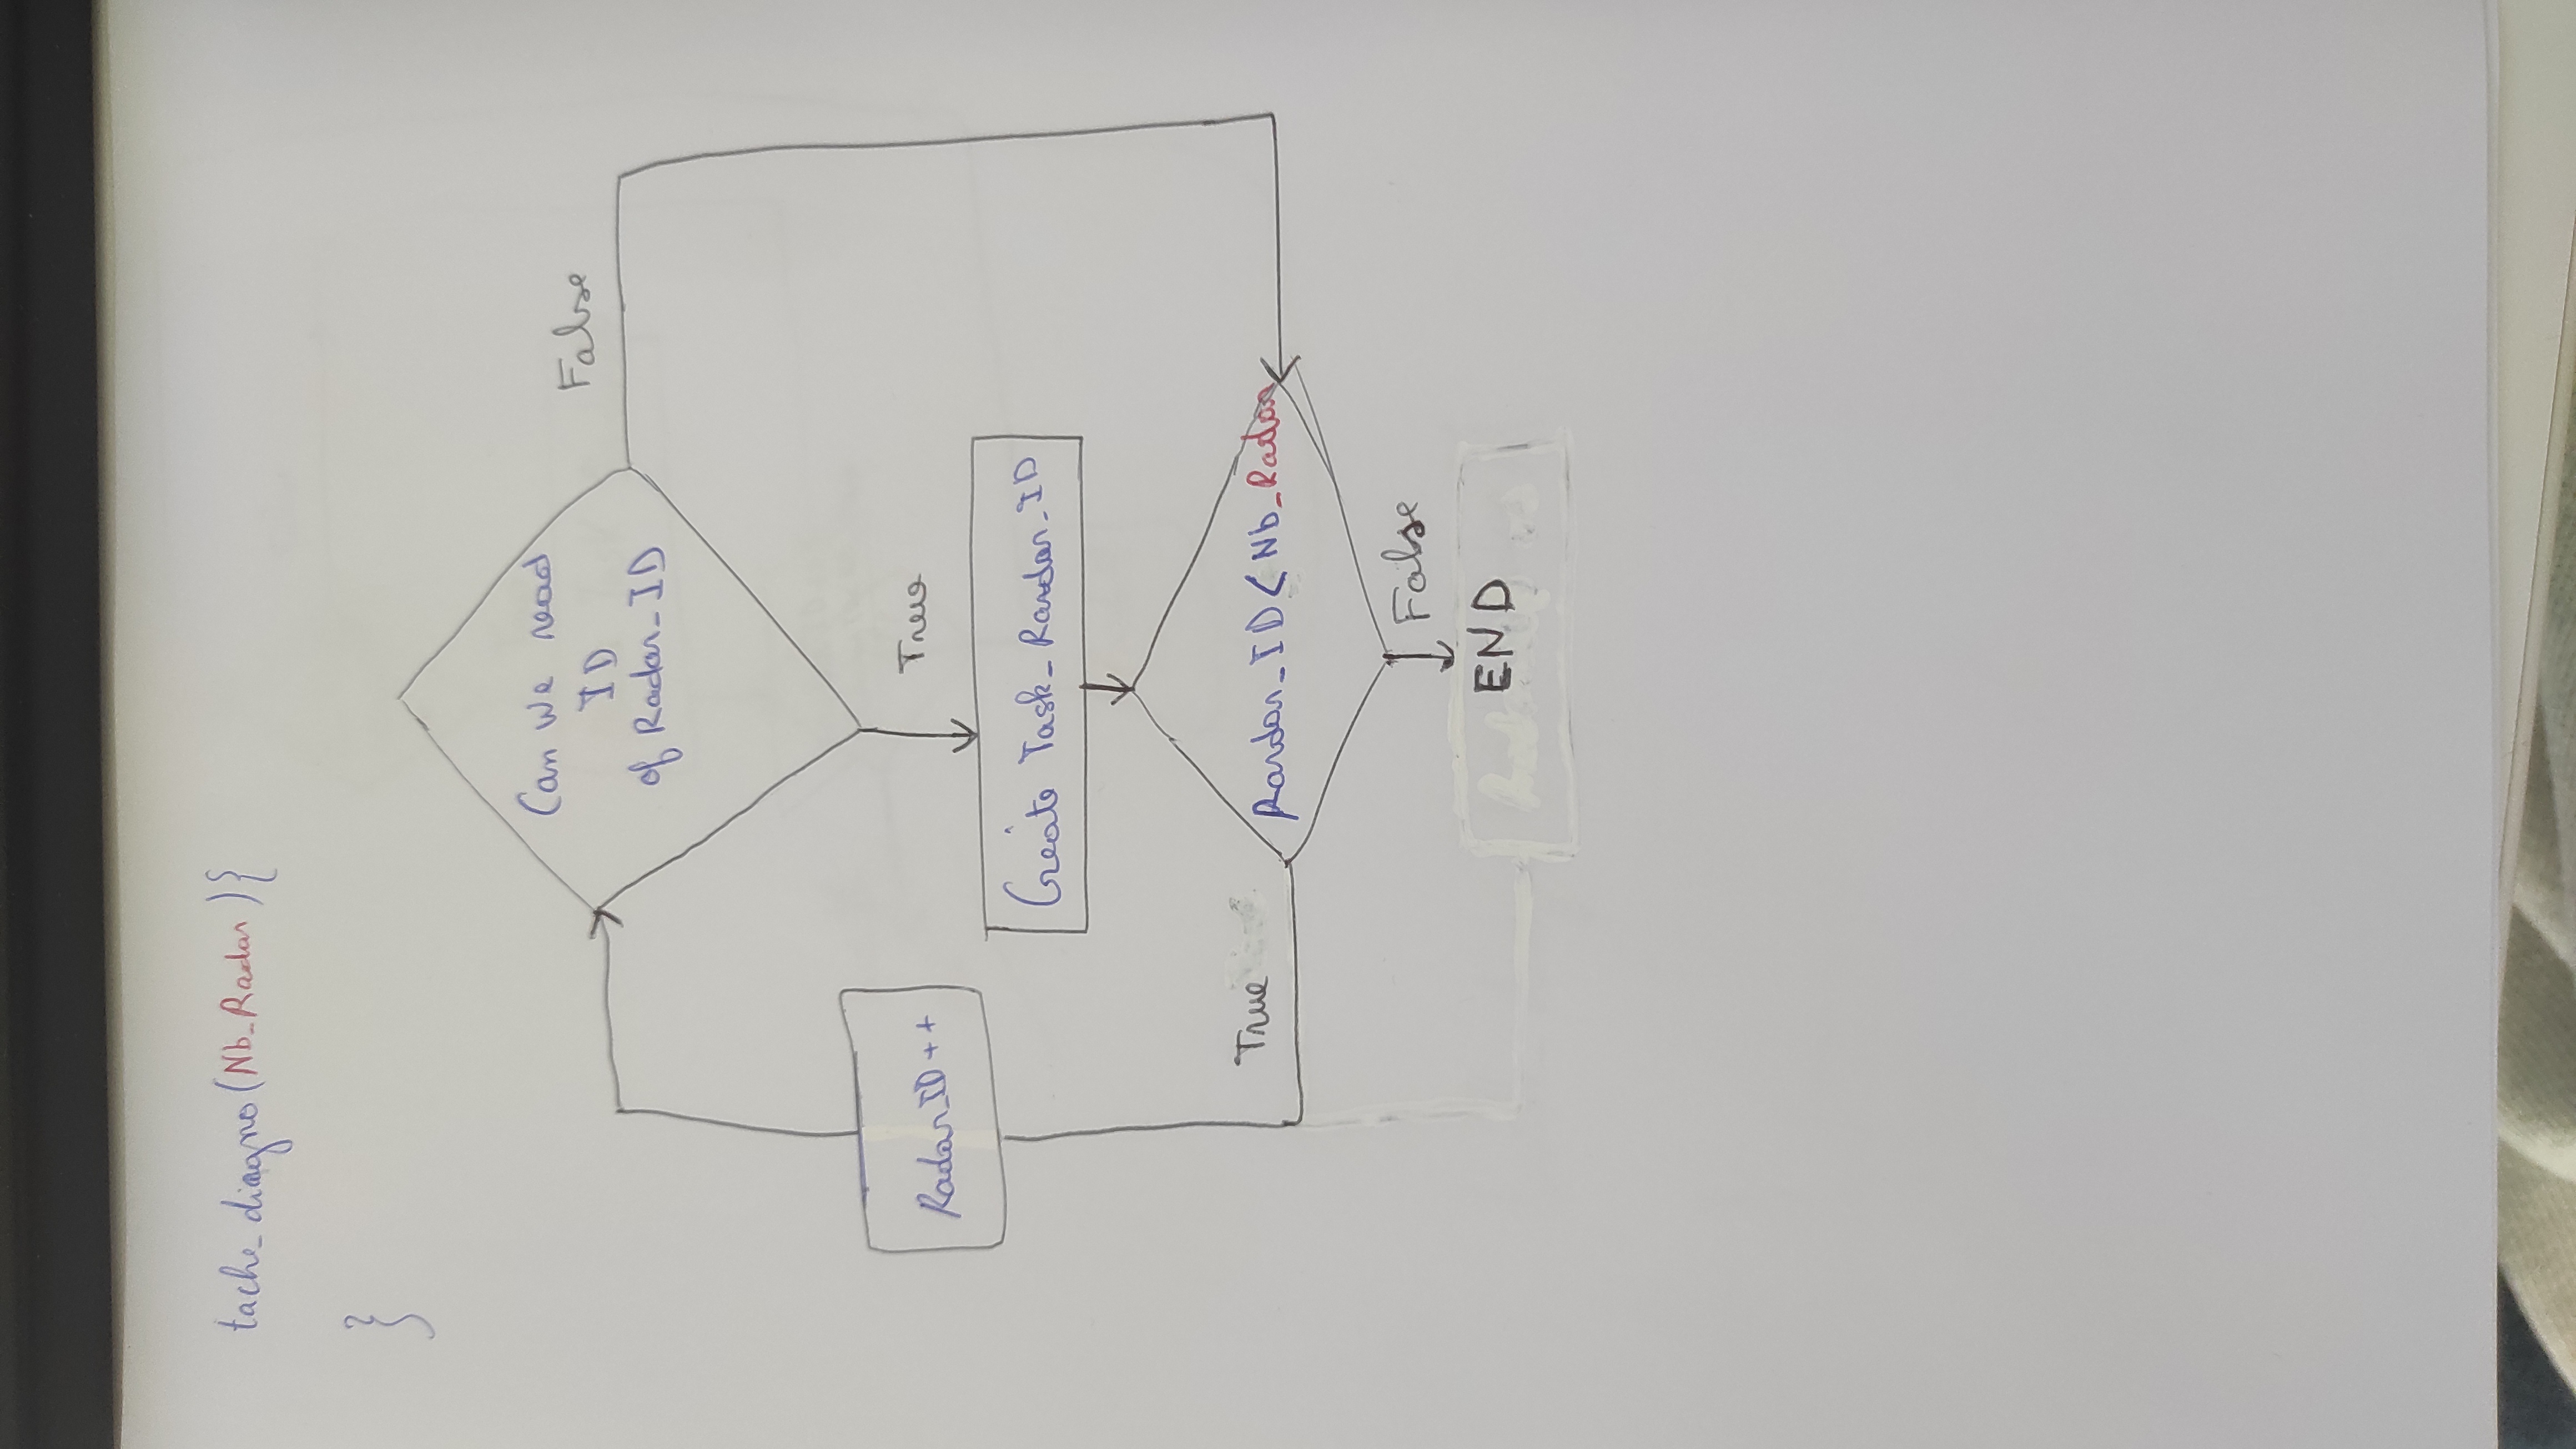 tache_diagno(Nb_Radar){
}
Can we read
ID
of Radar_ID
False
True
Radar_ID++
Create Task_Rardar_ID
True
Rardar_ID<Nb_Radar
False
END